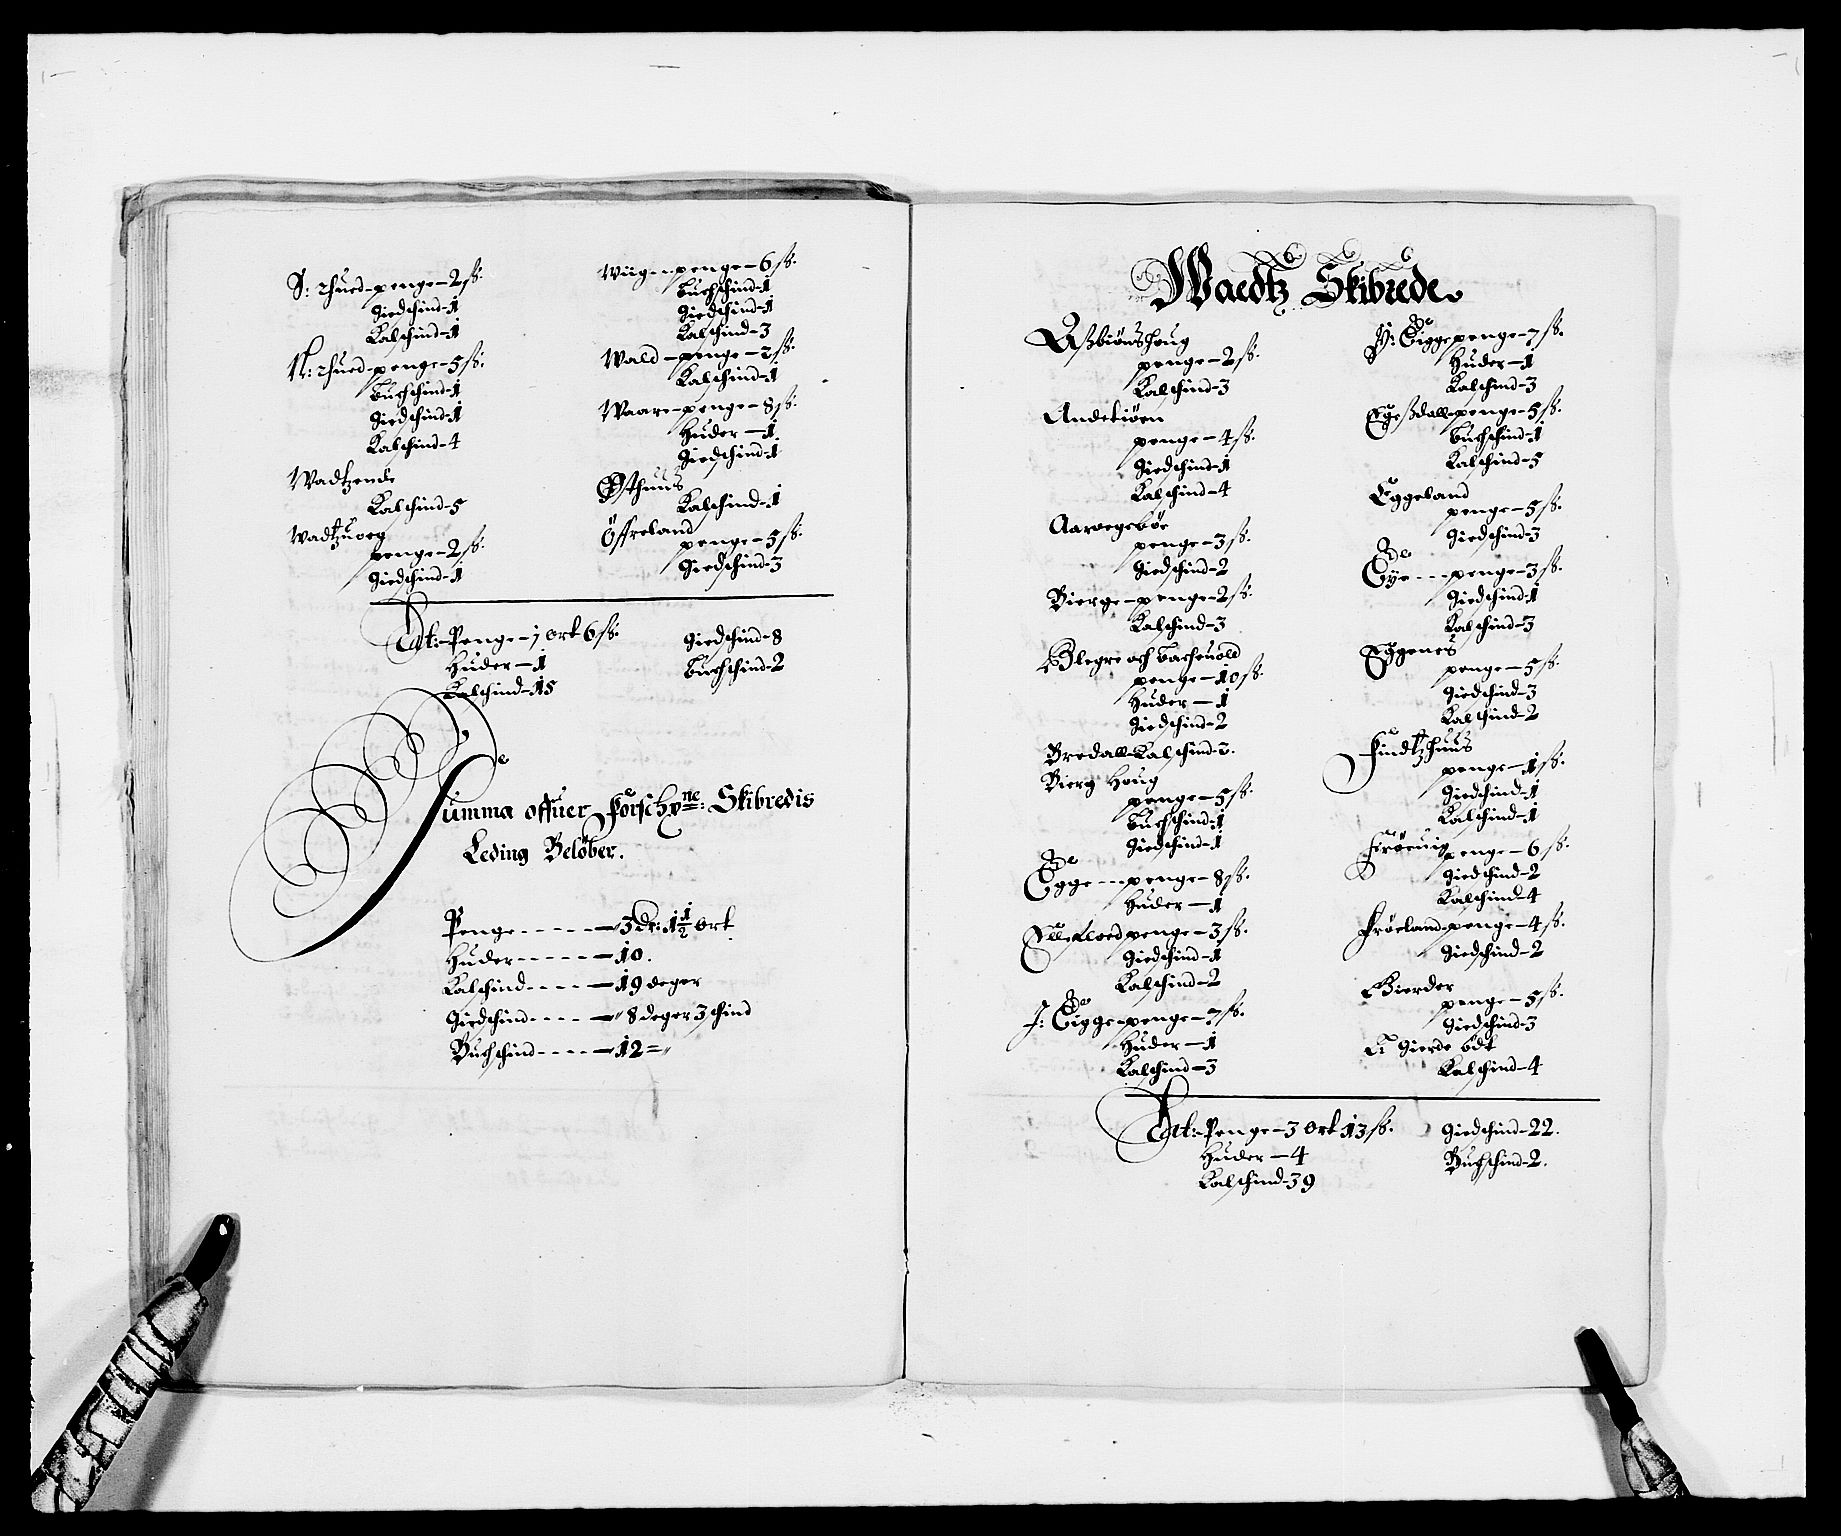 S: Thued penge - 2 ß.
Giedschind - 1
Kalschind - 1
N: Thued penge - 5 ß.
Buchschind - 1
Giedschind - 1
Kalschind - 4
Wadtzende
Kalschind - 5
Wadtzuoeg
penge - 2 ß.
Giedschind - 1
Wiig - penge - 6 ß.
Buchschind - 1
Giedschind - 1
Kalschind - 3
Wald - penge - 2 ß.
Kalschind - 1
Waare - penge - 8 ß.
Huder - 1
Giedschind - 1
Østhuus
Kalschind - 1
Öffreland
penge - 5 ß.
Giedschind - 3
Lat: Penge - 1 ort 6 ß.
Huder - 1
Kalschind - 15
Giedschind - 8
Buchschind - 2
Summa offuer Forschne: Skibredis
Leding Beløber.
Penge - - - - - 3 dr: 1 1/2 ort
Huder - - - - - 10.
Kalschind - - - - 19 deger
Giedschind - - - - 8 deger 3 schind
Buchschind - - - - 12 =
Waedtz Skibrede.
Aßbiönshoug
penge - 2 ß.
Kalschind - 3
Andetiöen
penge - 4 ß.
Giedschind - 1
Kalschind - 4
Aarvegsböe
penge - 3 ß.
Giedschind - 2
Bierge - penge - 2 ß.
Kalschind - 3
Blegre och Bacheuold
penge - 10 ß.
Huder - 1
Giedschind - 2
Bredall - Kalschind - 2.
Bierg Houg
penge - 5 ß.
Buchschind - 1
Giedschind - 1
Egge - - - penge - 8 ß.
Huder - 1
Ellefloed penge - 3 ß.
Giedschind - 1
Kalschind - 2
I: Eigge - penge - 7 ß.
Huder - 1
Kalschind - 3
Y: Eigge penge - 7 ß.
Huder - 1
Kalschind - 3
Egeßdall - penge - 5 ß.
Buchschind - 1
Kalschind - 5
Eggeland
penge - 5 ß.
Giedschind - 3
Eye - - - penge - 3 ß.
Giedschind - 1
Kalschind - 3
Eggenes
penge - 5 ß.
Giedschind - 3
Kalschind - 2
Findtzhuus
penge - 1 ß.
Giedschind - 1
Kalschind - 1
Fröeuig
penge - 6 ß.
Giedschind - 2
Kalschind - 4
Fröeland - penge - 4 ß.
Giedschind - 2
Gierder
penge - 5 ß.
Giedschind - 3
Gierde ödt
Kalschind - 4
Lat: Penge - 3 ort 13 ß.
Huder - 4
Kalschind - 39
Giedschind - 22.
Buchschind - 2.